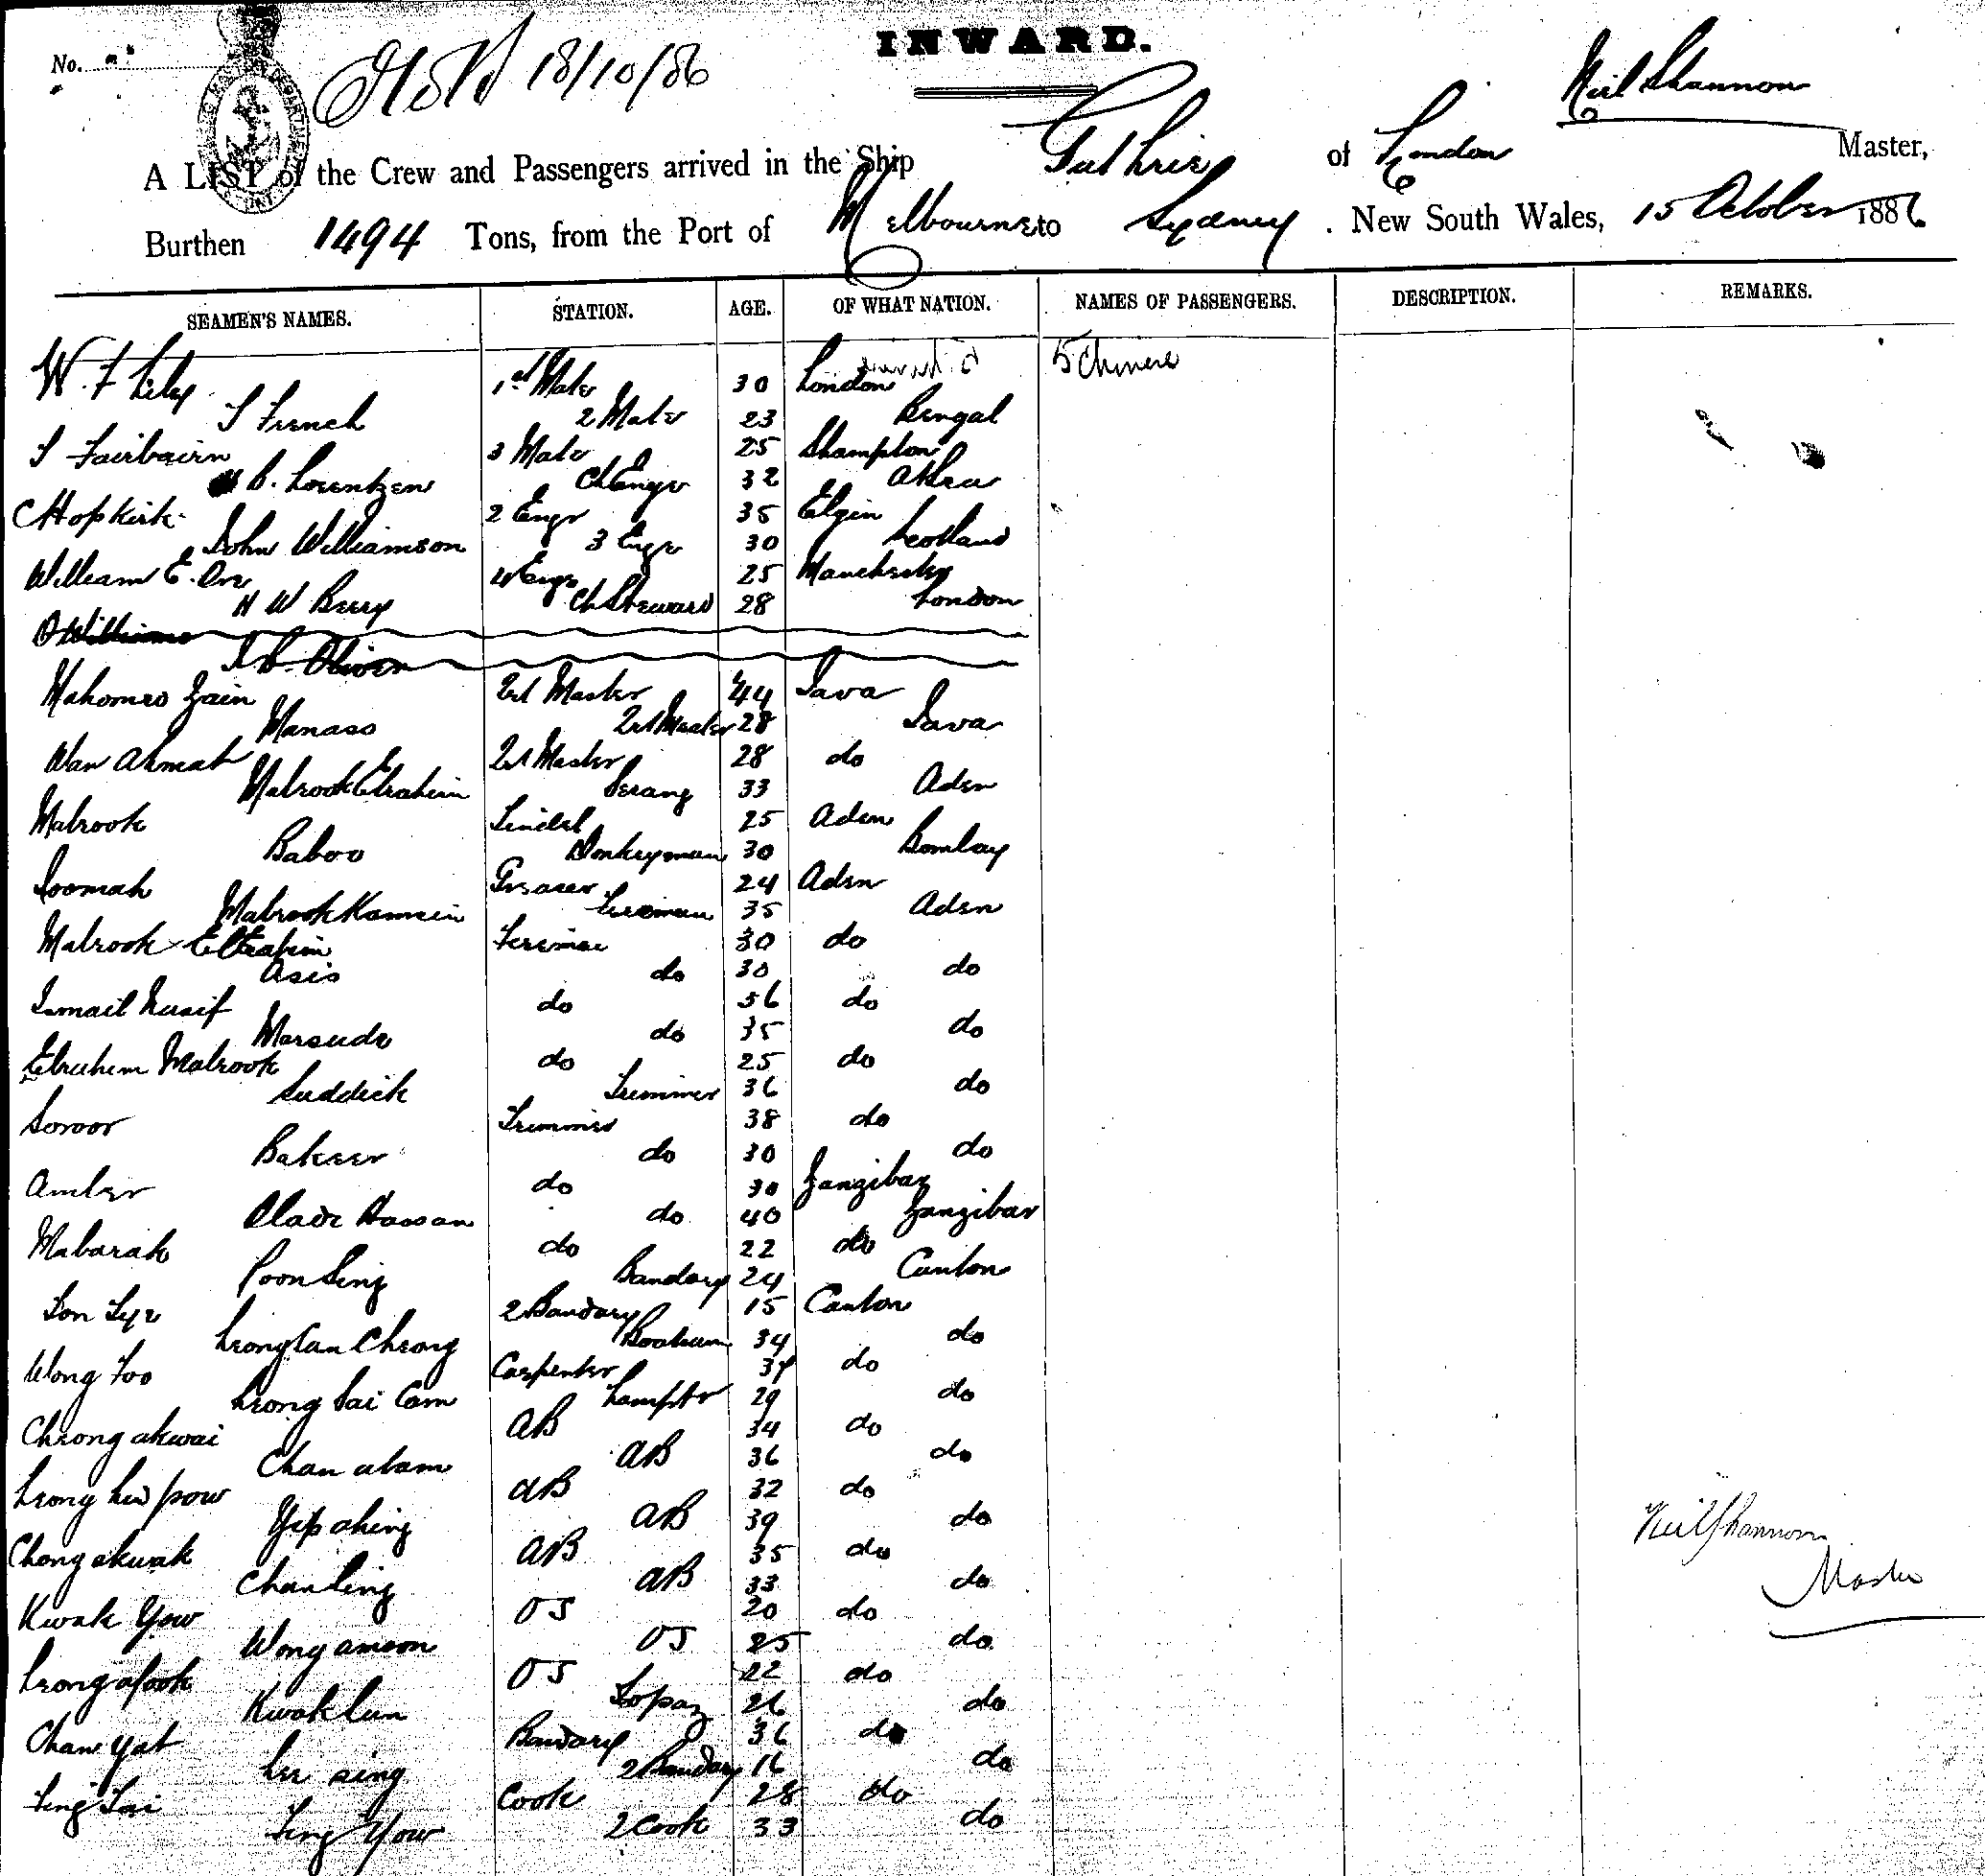 INWARD.
No.
18/10/86
Neil Shannon
A LIST of the Crew and Passengers arrived in the Ship Guthrie of London Master,
Burthen 1494 Tons, from the Port of Melbourne to Sydney. New South Wales, 15 October 1886
SEAMEN'S NAMES. STATION. AGE. OF WHAT NATION. NAMES OF PASSENGERS. DESCRIPTION. REMARKS.
W. F Lily 1st Mate 30 London 5 Chinese
T French 2 Mate 23 Bengal
T Fairbairn 3 Mate 25 Shampton
B. Lorentzen Ch Engr 32
C Hopkirk 2 Engr 35 Elgin
John Williamson 3 Engr 30 Scotland
William E. Orr 4 Engr 25 Manchester
H W Berry Ch Steward 28 London
O Williams
Oliver
Mahomed Zain Master 44 Java
Manaso 28 Java
Wan Ahmat Master 28 do
Mabrook Ebrahim Serang 33 Aden
Mabrook Tindel 25 Aden
Baboo Donkeyman 30 Bombay
Soomah Greaser 24 Aden
Mabrook Kamsein Fireman 35 Aden
Mabrook Ebrahim Fireman 30 do
Asis do 30 do
Ismail Nusif do 36 do
Marsude do 35 do
Ebrahem Mabrook do 25 do
Suddick Trimmer 36 do
Soroor Trimmer 38 do
Bakeer do 30 do
Amber do 30 Zanzibar
Hassan do 40 Zanzibar
Mabarak do 22 do
Poon Sing Bandary 24 Canton
Lon Tye 2 Bandary 15 Canton
Leong Can Cheong 34 do
Wong Foo Carpenter 34 do
Leong Sai Cam Lamptr 29 do
Cheong akwai AB 34 do
Chan atam AB 36 do
Leong Lew pow AB 32 do
Yip ahing AB 39 do
Chong akwak AB 35 do
Chan Ling AB 33 do
Kwak Yow OS 20 do
Wong amoon OS 25 do
Leong afook OS 22 do
Kwak Lun Topaz 26 do
Chan Yat Bandary 36 do
Lee sing 2 Bandary 16 do
Ting Tai Cook 28 do
Ting Yow 2 Cook 33 do
Neil Shannon
Master